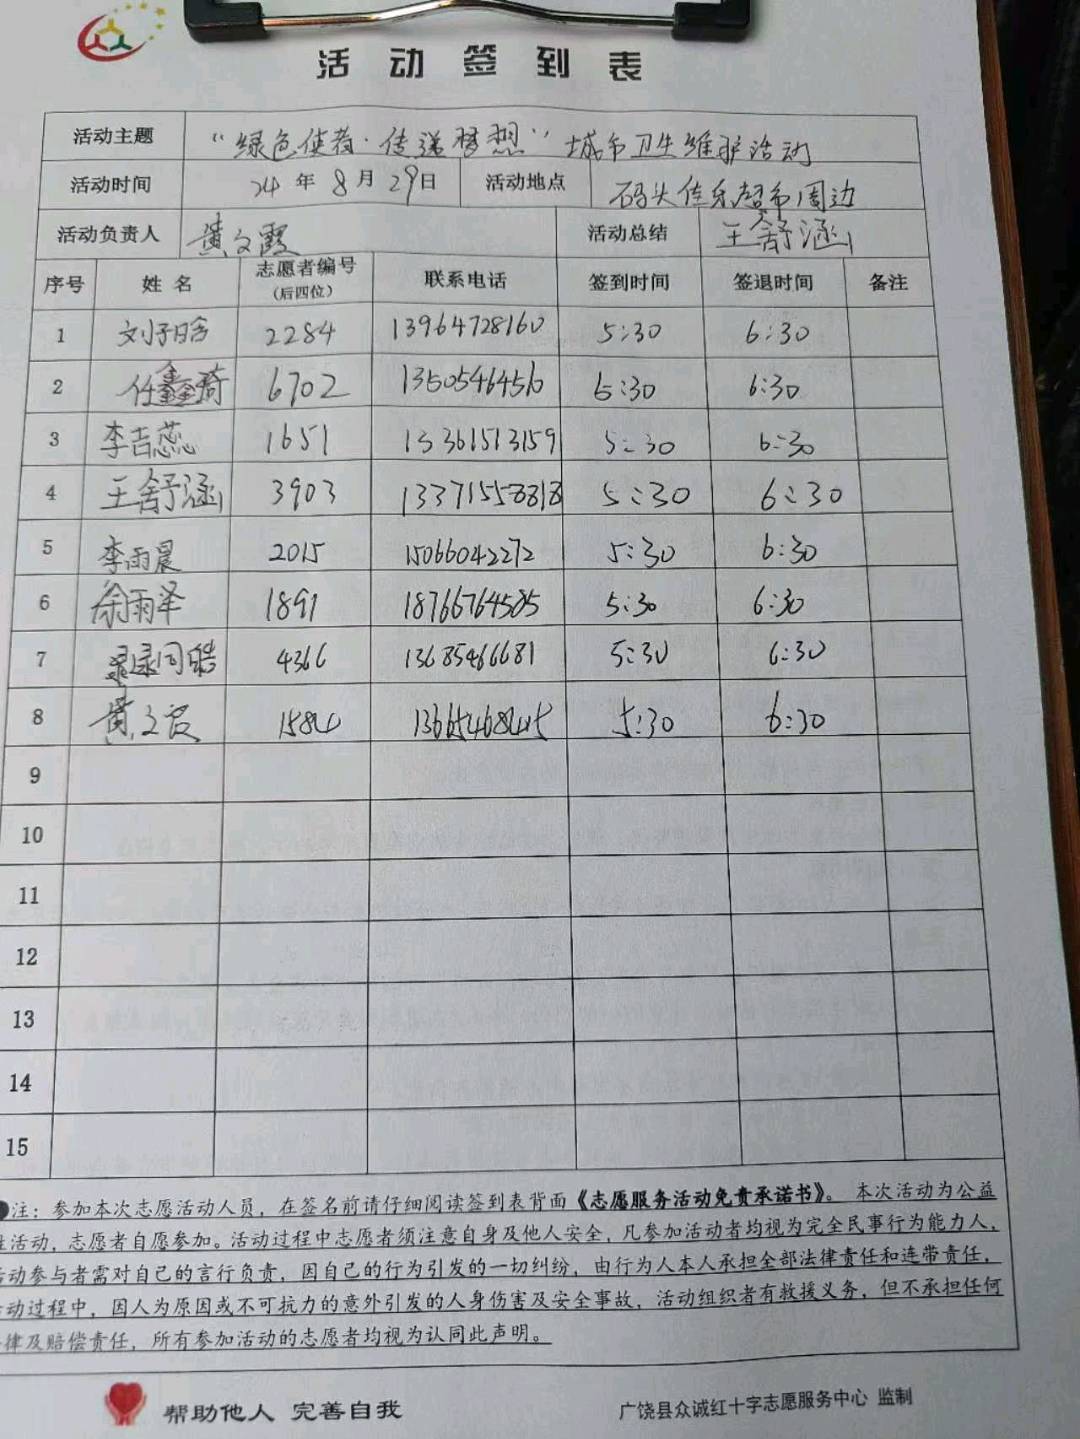 活动签到表
活动主题 “绿色使者·传递梦想”城市卫生维护活动
活动时间 24年8月29日 活动地点 码头佳乐超市周边
活动负责人 黄文霞 活动总结 王舒涵
序号 姓名 志愿者编号（后四位） 联系电话 签到时间 签退时间 备注
1 刘子晗 2284 13964728160 5:30 6:30
2 任鑫琦 6702 1350546456 5:30 6:30
3 李吉蕊 1651 13361513159 5:30 6:30
4 王舒涵 3903 13371558818 5:30 6:30
5 李雨晨 2015 15066042272 5:30 6:30
6 徐雨泽 1891 18766764585 5:30 6:30
7 4366 13685466681 5:30 6:30
8 黄文霞 1584 13665468445 5:30 6:30
9
10
11
12
13
14
15
注：参加本次志愿活动人员，在签名前请仔细阅读签到表背面《志愿服务活动免责承诺书》。本次活动为公益
性活动，志愿者自愿参加。活动过程中志愿者须注意自身及他人安全，凡参加活动者均视为完全民事行为能力人，
活动参与者需对自己的言行负责，因自己的行为引发的一切纠纷，由行为人本人承担全部法律责任和连带责任，
活动过程中，因人为原因或不可抗力的意外引发的人身伤害及安全事故，活动组织者有救援义务，但不承担任何
法律及赔偿责任，所有参加活动的志愿者均视为认同此声明。
帮助他人 完善自我 广饶县众诚红十字志愿服务中心 监制